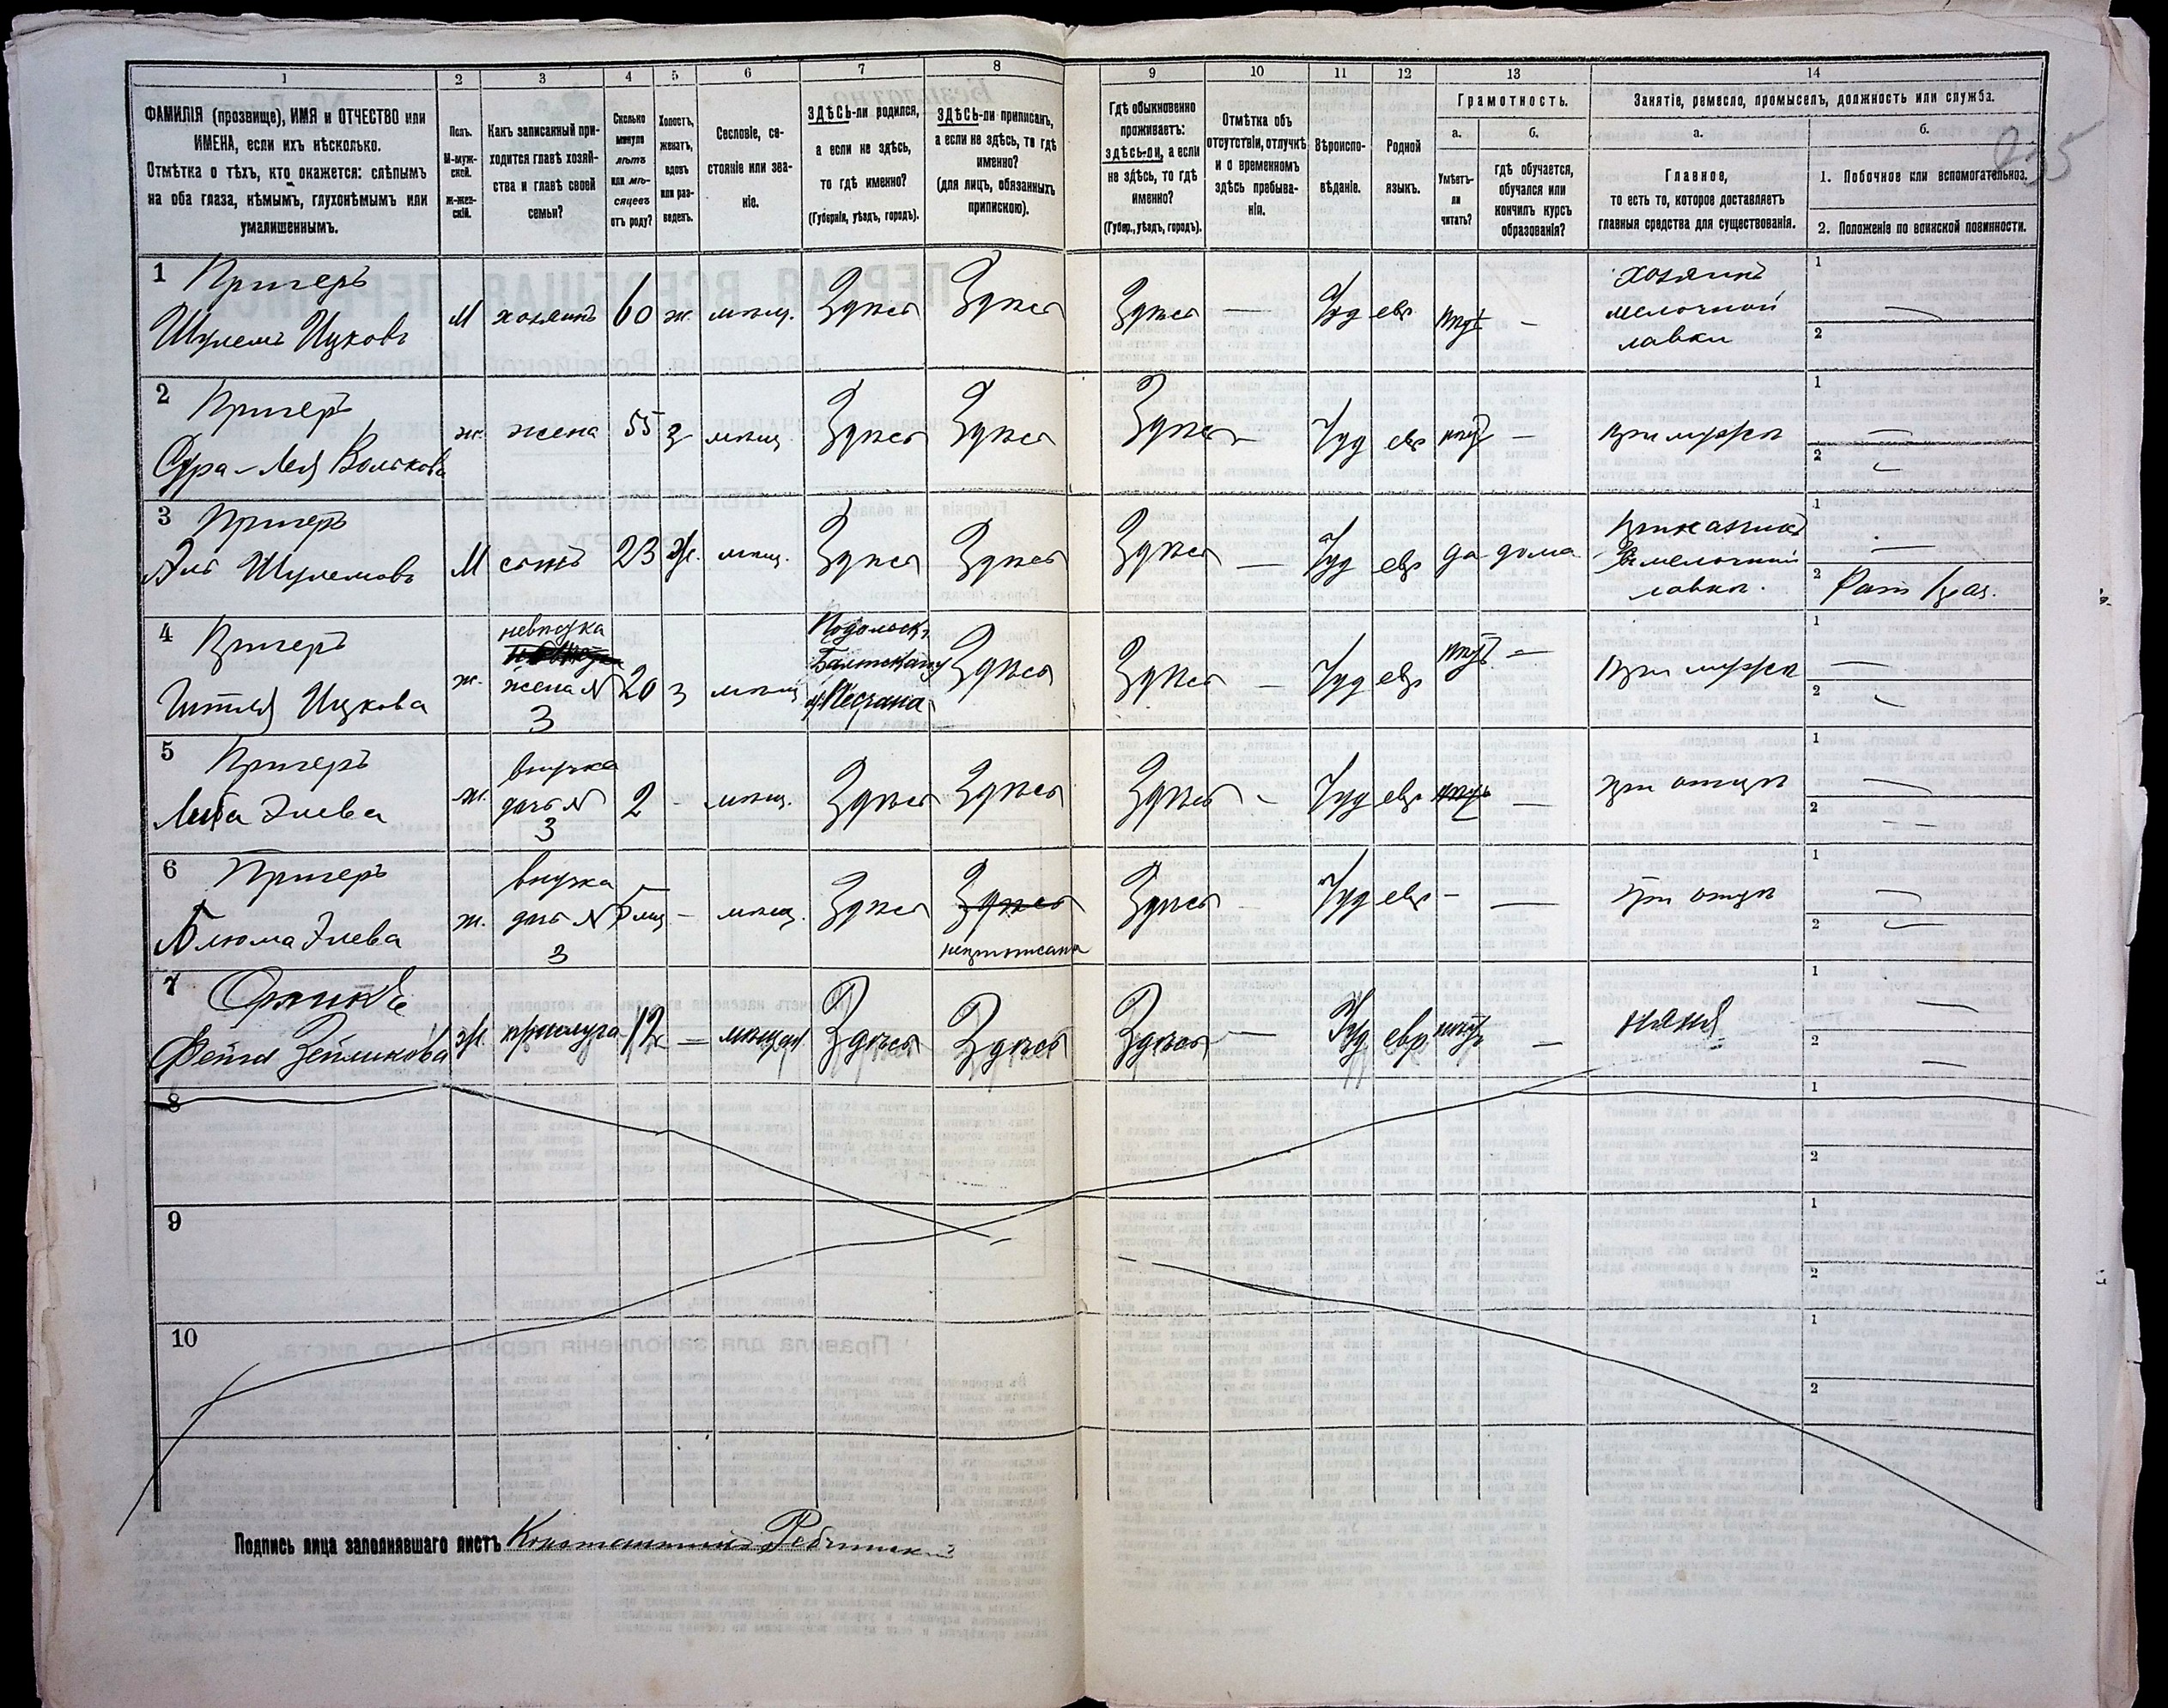 1 2 3 4 5 6 7 8 9 10 11 12 13 14
ФАМИЛІЯ (прозвище), ИМЯ и ОТЧЕСТВО или
ИМЕНА, если ихъ нѣсколько.
Отмѣтка о тѣхъ, кто окажется: слѣпымъ
на оба глаза, нѣмымъ, глухонѣмымъ или
умалишеннымъ.
Полъ.
М-муж-
ской.
ж-жен-
скій.
Какъ записанный при-
ходится главѣ хозяй-
ства и главѣ своей
семьи?
Сколько
минуло
лѣтъ
или мѣ-
сяцевъ
отъ роду?
Холостъ,
женатъ,
вдовъ
или раз-
веденъ.
Сословіе, со-
стояніе или зва-
ніе.
ЗДѢСЬ-ли родился,
а если не здѣсь,
то гдѣ именно?
(Губернія, уѣздъ, городъ).
ЗДѢСЬ-ли приписанъ,
а если не здѣсь, то гдѣ
именно?
(для лицъ, обязанныхъ
припискою).
Гдѣ обыкновенно
проживаетъ:
здѣсь-ли, а если
не здѣсь, то гдѣ
именно?
(Губер., уѣздъ, городъ).
Отмѣтка объ
отсутствіи, отлучкѣ
и о временномъ
здѣсь пребыва-
ніи.
Вѣроиспо-
вѣданіе.
Родной
языкъ.
Грамотность.
а.
Умѣетъ-
ли
читать?
б.
гдѣ обучается,
обучался или
кончилъ курсъ
образованія?
Занятіе, ремесло, промыселъ, должность или служба.
а.
Главное,
то есть то, которое доставляетъ
главныя средства для существованія.
б.
1. Побочное или вспомогательное.
2. Положеніе по воинской повинности.
1 Пригеръ
Шулемъ Ицковъ
М хозяинъ 60 ж. мѣщ. Здѣсь Здѣсь Здѣсь — Іуд евр нѣтъ —
хозяинъ
мелочной
лавки
1 —
2
2 Пригеръ
Сура-Лея Волькова
ж. жена 55 з мѣщ Здѣсь Здѣсь Здѣсь — Іуд евр нѣтъ —
при мужѣ
1 —
2 —
3 Пригеръ
Эль Шулемовъ
М сынъ 23 ж. мѣщ. Здѣсь Здѣсь Здѣсь — Іуд евр да дома
приказчикъ
въ мелочной
лавкѣ.
1 —
2
4 Пригеръ
Гитля Ицкова
ж.
невѣстка
жена N
3
20 з мѣщ
Подольск.
Балтскаго у
Здѣсь Здѣсь — Іуд евр нѣтъ —
при мужѣ
1 —
2 —
5 Пригеръ
Либа Элева
ж.
внучка
дочь N
3
2 - мѣщ. Здѣсь Здѣсь Здѣсь - Іуд евр нѣтъ —
при отцѣ
1 —
2 —
6 Пригеръ
Блюма Элева
ж.
внучка
дочь N
3
5 мѣщ. Здѣсь Здѣсь
неприписана
Здѣсь Іуд евр - —
при отцѣ
1 —
2 —
7
Зейликова
ж. прислуга 12 — мѣщан Здѣсь Здѣсь Здѣсь — Іуд евр нѣтъ —
няня
1 —
2 —
8
1
2
9
1
2
10
1
2
Подпись лица заполнявшаго листъ Константинъ